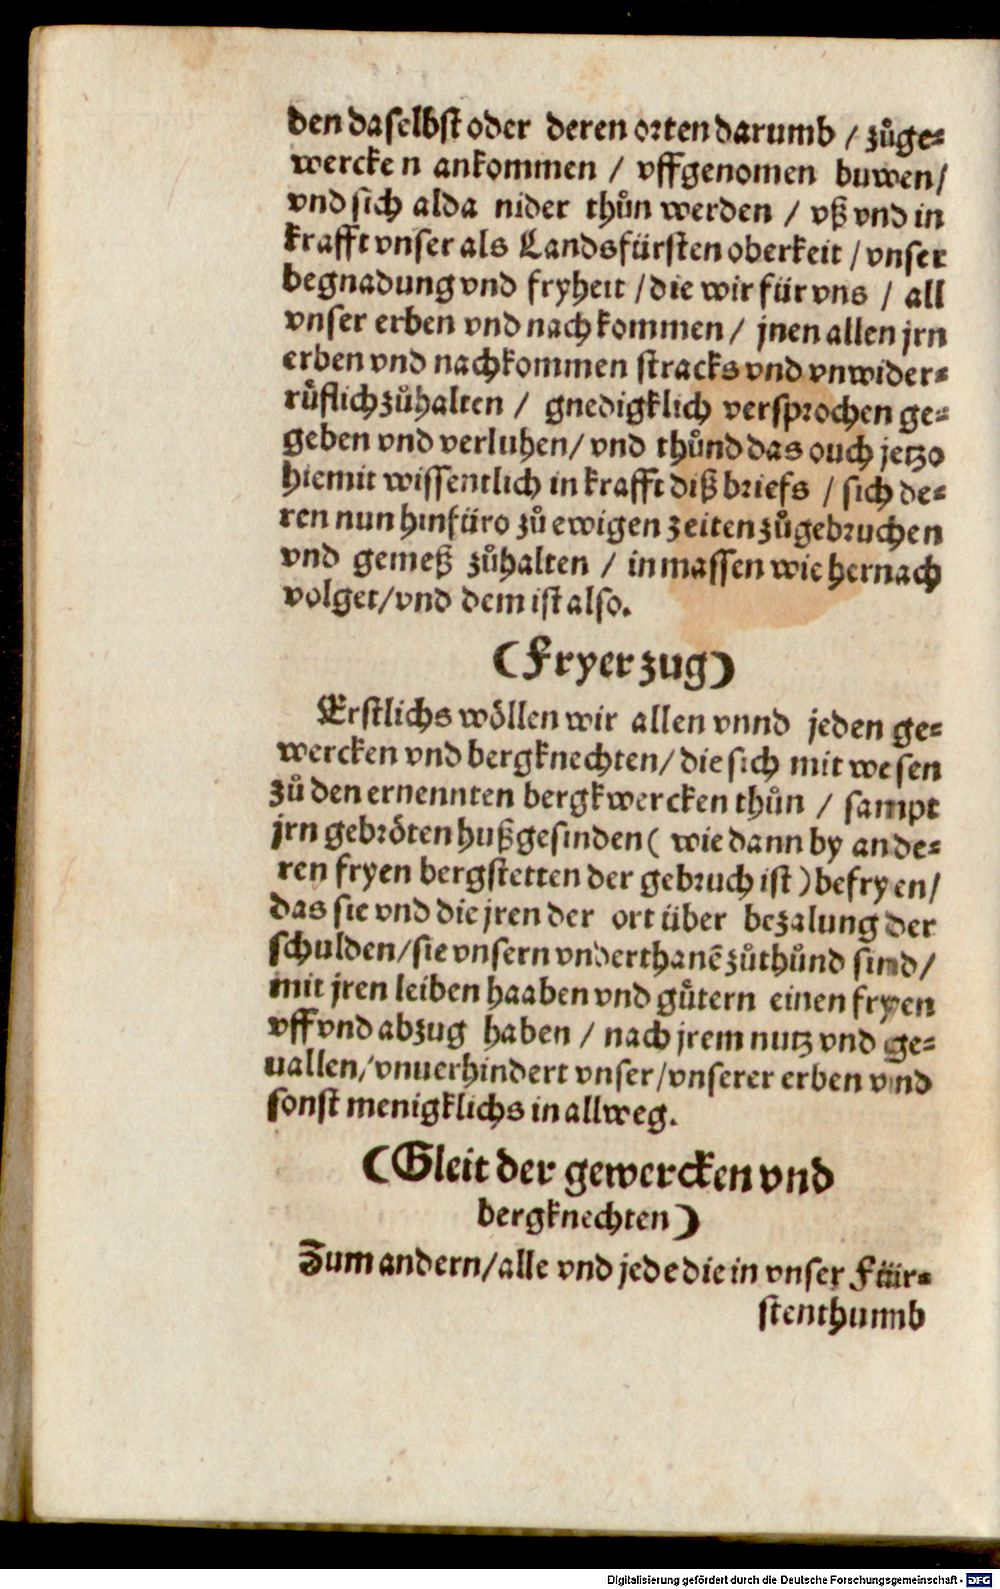 den daselbst oder deren orten darumb / zůge⸗
wercken ankommen / vffgenomen buwen/
vnd sich alda nider thůn werden / vß vnd in
krafft vnser als Landsfürsten oberkeit / vnser
begnadung vnd fryheit / die wir für vns / all
vnser erben vnd nachkommen / jnen allen jrn
erben vnd nachkommen stracks vnd vnwider⸗
růflich zůhalten / gnedigklich versprochen ge⸗
geben vnd verluhen/ vnd thůnd das ouch jetzo
hiemit wissentlich in krafft diß briefs / sich de⸗
ren nun hinfüro zů ewigen zeiten zůgebruchen
vnd gemeß zůhalten / inmassen wie hernach
volget/vnd dem ist also.
(Fryer zug)
Erstlichs wöllen wir allen vnnd jeden ge⸗
wercken vnd bergknechten/ die sich mit wesen
zů den ernennten bergkwercken thůn / sampt
jrn gebröten hußgesinden ( wie dann by ande⸗
ren fryen bergstetten der gebruch ist ) befryen/
das sie vnd die jren der ort über bezalung der
schulden/sie vnsern vnderthanē zůthůnd sind/
mit jren leiben haaben vnd gůtern einen fryen
vff vnd abzug haben / nach jrem nutz vnd ge⸗
uallen/vnuerhindert vnser/vnserer erben vnd
sonst menigklichs in allweg.
(Gleit der gewercken vnd
bergknechten)
Zum andern/alle vnd jede die in vnser Für⸗
stenthumb
Digitalisierung gefördert durch die Deutsche Forschungsgemeinschaft - DFG